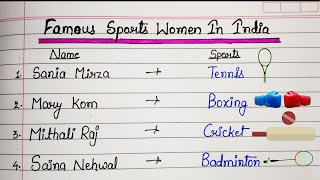 Famous Sports Women In India
Name Sports
1. Sania Mirza → Tennis
2. Mary Kom → Boxing
3. Mithali Raj → Cricket
4. Saina Nehwal → Badminton